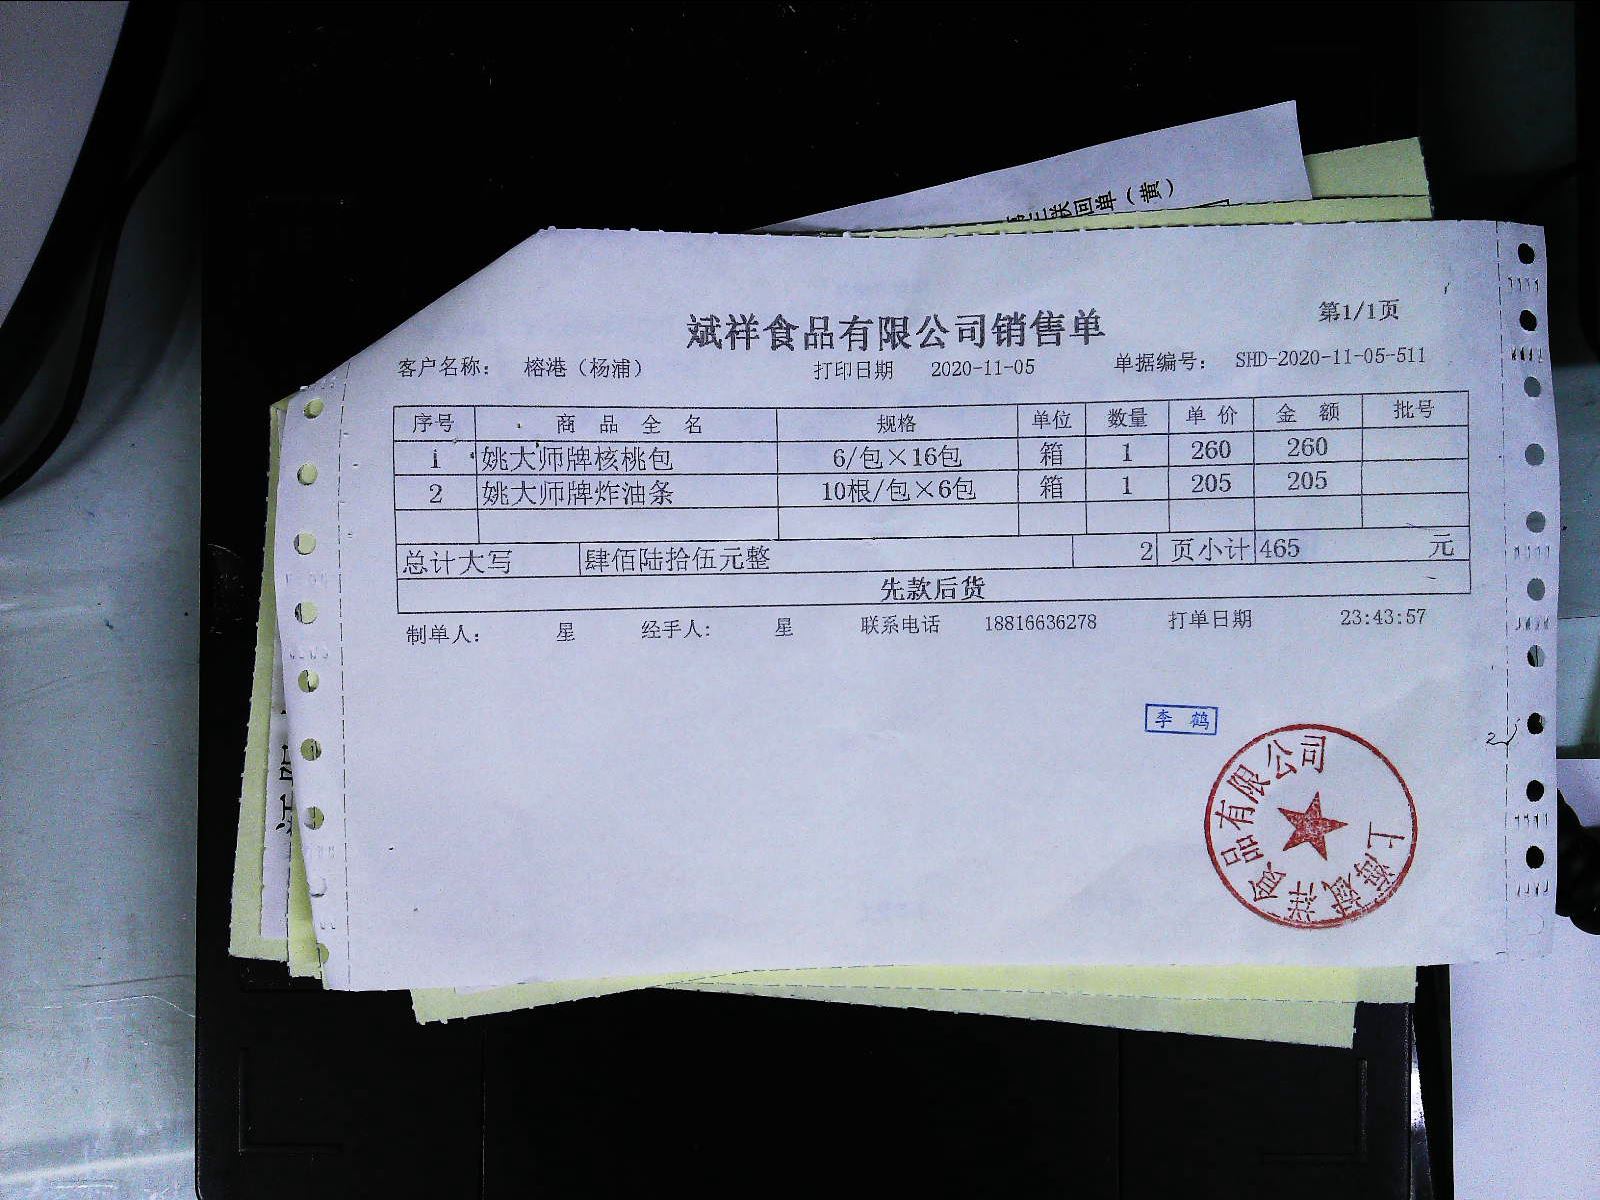 联回单（黄）
第1/1页
斌祥食品有限公司销售单
客户名称： 榕港（杨浦） 打印日期 2020-11-05 单据编号： SHD-2020-11-05-511
序号 商 品 全 名 规格 单位 数量 单 价 金 额 批号
1 姚大师牌核桃包 6/包×16包 箱 1 260 260
2 姚大师牌炸油条 10根/包×6包 箱 1 205 205
总计大写 肆佰陆拾伍元整 2 页小计 465 元
先款后货
制单人： 星 经手人： 星 联系电话 18816636278 打单日期 23:43:57
李 鹤
上海斌祥食品有限公司